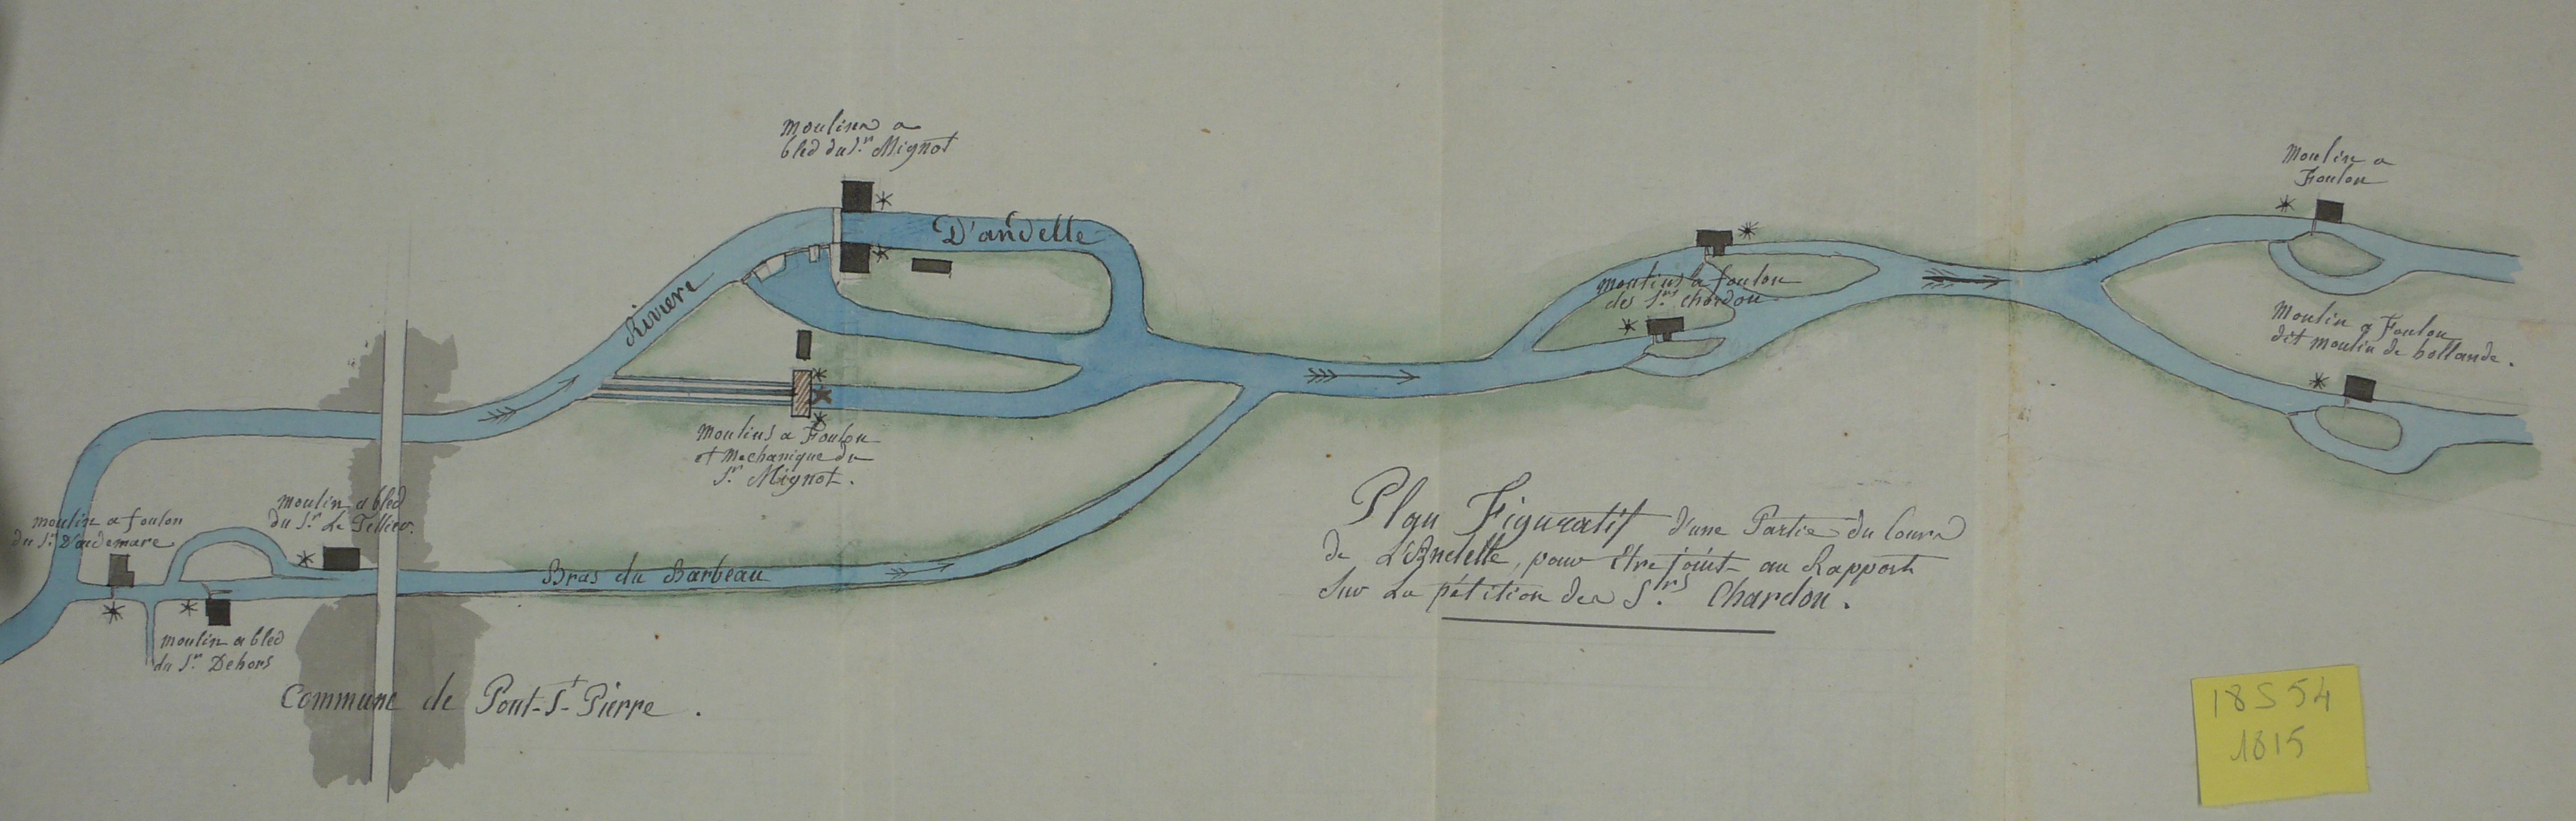 Moulins a
bled du S.r Mignot
Riviere
D'andelle
Moulins a Foulon
et Mechanique du
S.r Mignot.
moulin a foulon
du S.r D'audemare
moulin a bled
du S.r Le Tellier.
moulin a bled
du S.r Dehors
Bras du Barbeau
Commune de Pont-St-Pierre.
moulins à foulon
des S.rs Chardon
Moulin a
Foulon
Moulin a Foulon
dit moulin de hollande.
Plan Figuratif d'une Partie du Cours
de L'Andelle, pour Etre joint au Rapport
Sur La pétition des S.rs Chardon.
18 S 54
1815